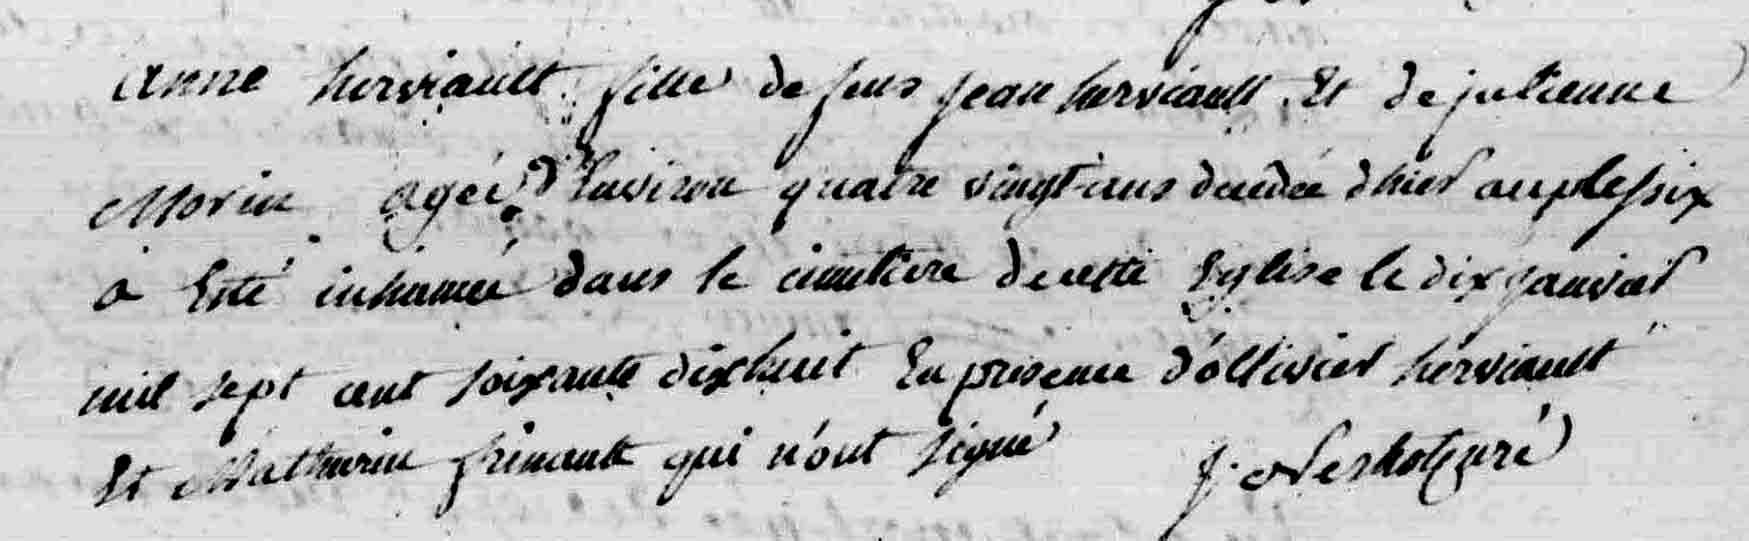 anne herviault fille de feus jean herviault Et de julienne
Morin agée d'Environ quatre vingt ans decedée d'hier au plessix
a Esté inhumée dans le cimetiere de cette Eglise le dix janvier
mil sept cent soixante dix huit En presence d'ollivier herviault
Et Mathurin frinault qui n'ont signé